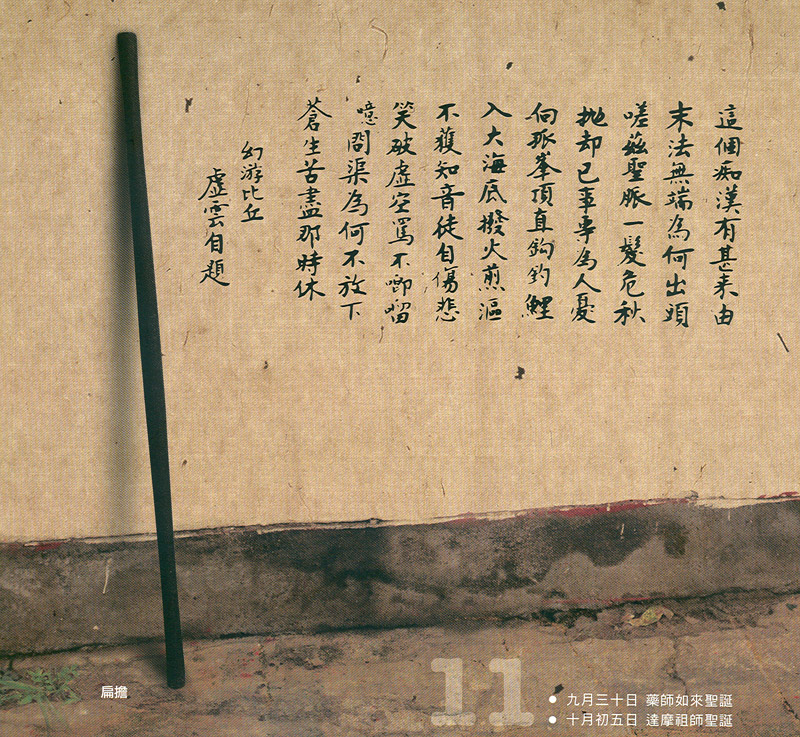 這個痴漢有甚来由
末法無端為何出頭
嗟茲聖脈一髮危秋
抛却己事專為人憂
向孤峯頂直鈎釣鯉
入大海底撥火煎漚
不獲知音徒自傷悲
笑破虛空罵不唧㽞
噫問渠為何不放下
蒼生苦盡那時休
幻游比丘
虛雲自題
扁擔
11
● 九月三十日 藥師如來聖誕
● 十月初五日 達摩祖師聖誕